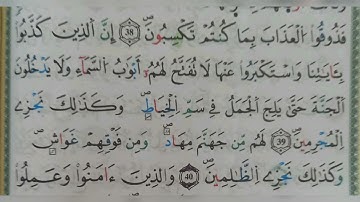 فَذُوقُوا۟ ٱلْعَذَابَ بِمَا كُنتُمْ تَكْسِبُونَ 38 إِنَّ ٱلَّذِينَ كَذَّبُوا۟
بِـَٔايَـٰتِنَا وَٱسْتَكْبَرُوا۟ عَنْهَا لَا نُفَتَّحُ لَهُمْ أَبْوَٰبُ ٱلسَّمَآءِ وَلَا يَدْخُلُونَ
ٱلْجَنَّةَ حَتَّىٰ يَلِجَ ٱلْجَمَلُ فِے سَمِّ ٱلْخِيَاطِ وَكَذَٰلِكَ نَجْزِے
ٱلْمُجْرِمِينَ 39 لَهُم مِّن جَهَنَّمَ مِهَادٌ وَمِن فَوْقِهِمْ غَوَاشٍ
وَكَذَٰلِكَ نَجْزِے ٱلظَّـٰلِمِينَ 40 وَٱلَّذِينَ ءَامَنُوا۟ وَعَمِلُوا۟